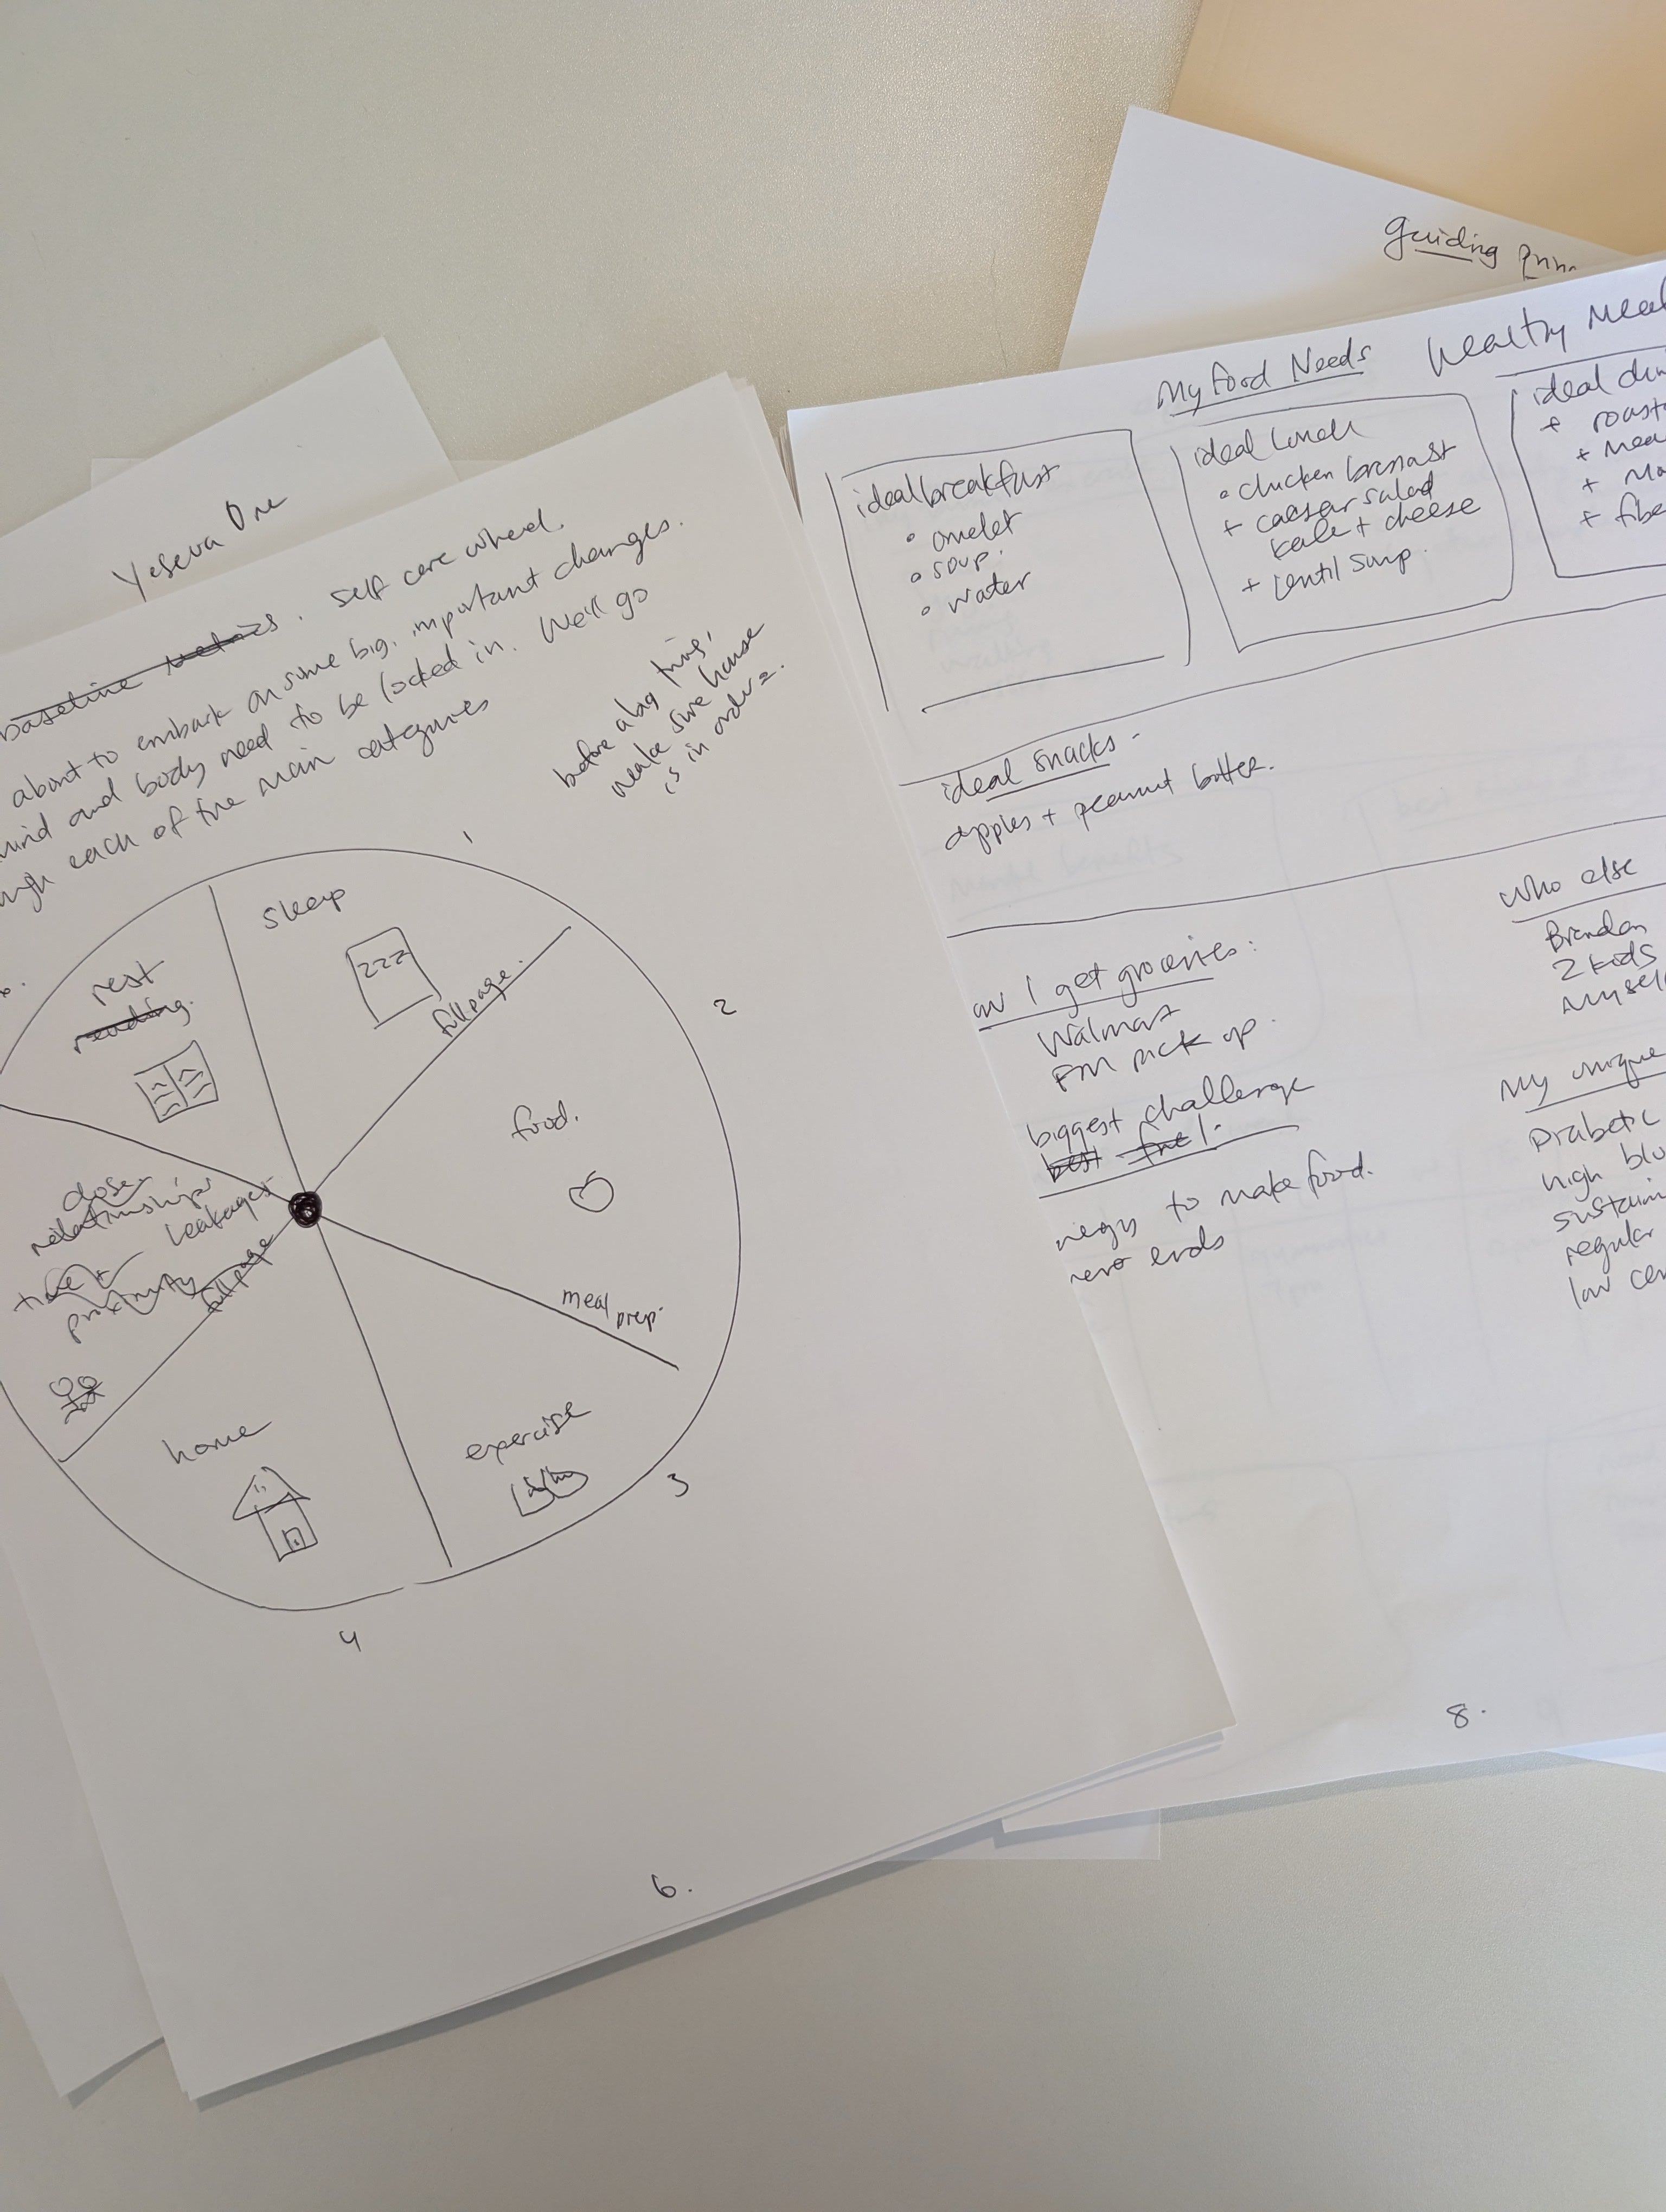 Yeseva One
baseline metrics. self care wheel.
about to embark on some big, important changes.
mind and body need to be locked in. We'll go
each of the main categories
before a big thing,
make sure house
is in order
1
sleep
zzz
full page.
2
rest
reading.
food.
close
relationships
leakages
time +
proximity
full page
meal
prep.
home
exercise
3
4
6.
guiding
My Food Needs
healthy
ideal breakfast
• omelet
• soup
• water
ideal lunch
• chicken
+ caesar salad
kale + cheese
+ lentil soup.
ideal
+
+
+
+
ideal snacks -
apples + peanut butter.
I get groceries:
Walmart
FM pick up.
biggest challenge
best
to make food.
ends
who else
Brandon
2 kids
myself
My unique
high
regular
low
8.